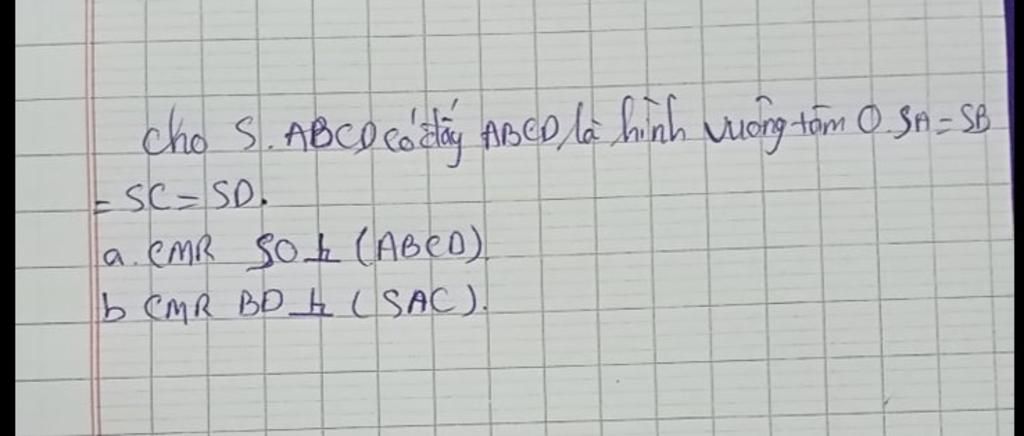 Cho S. ABCD có đáy ABCD là hình vuông tâm O. SA = SB
= SC = SD.
a. CMR SO ⊥ (ABCD)
b CMR BD ⊥ (SAC).